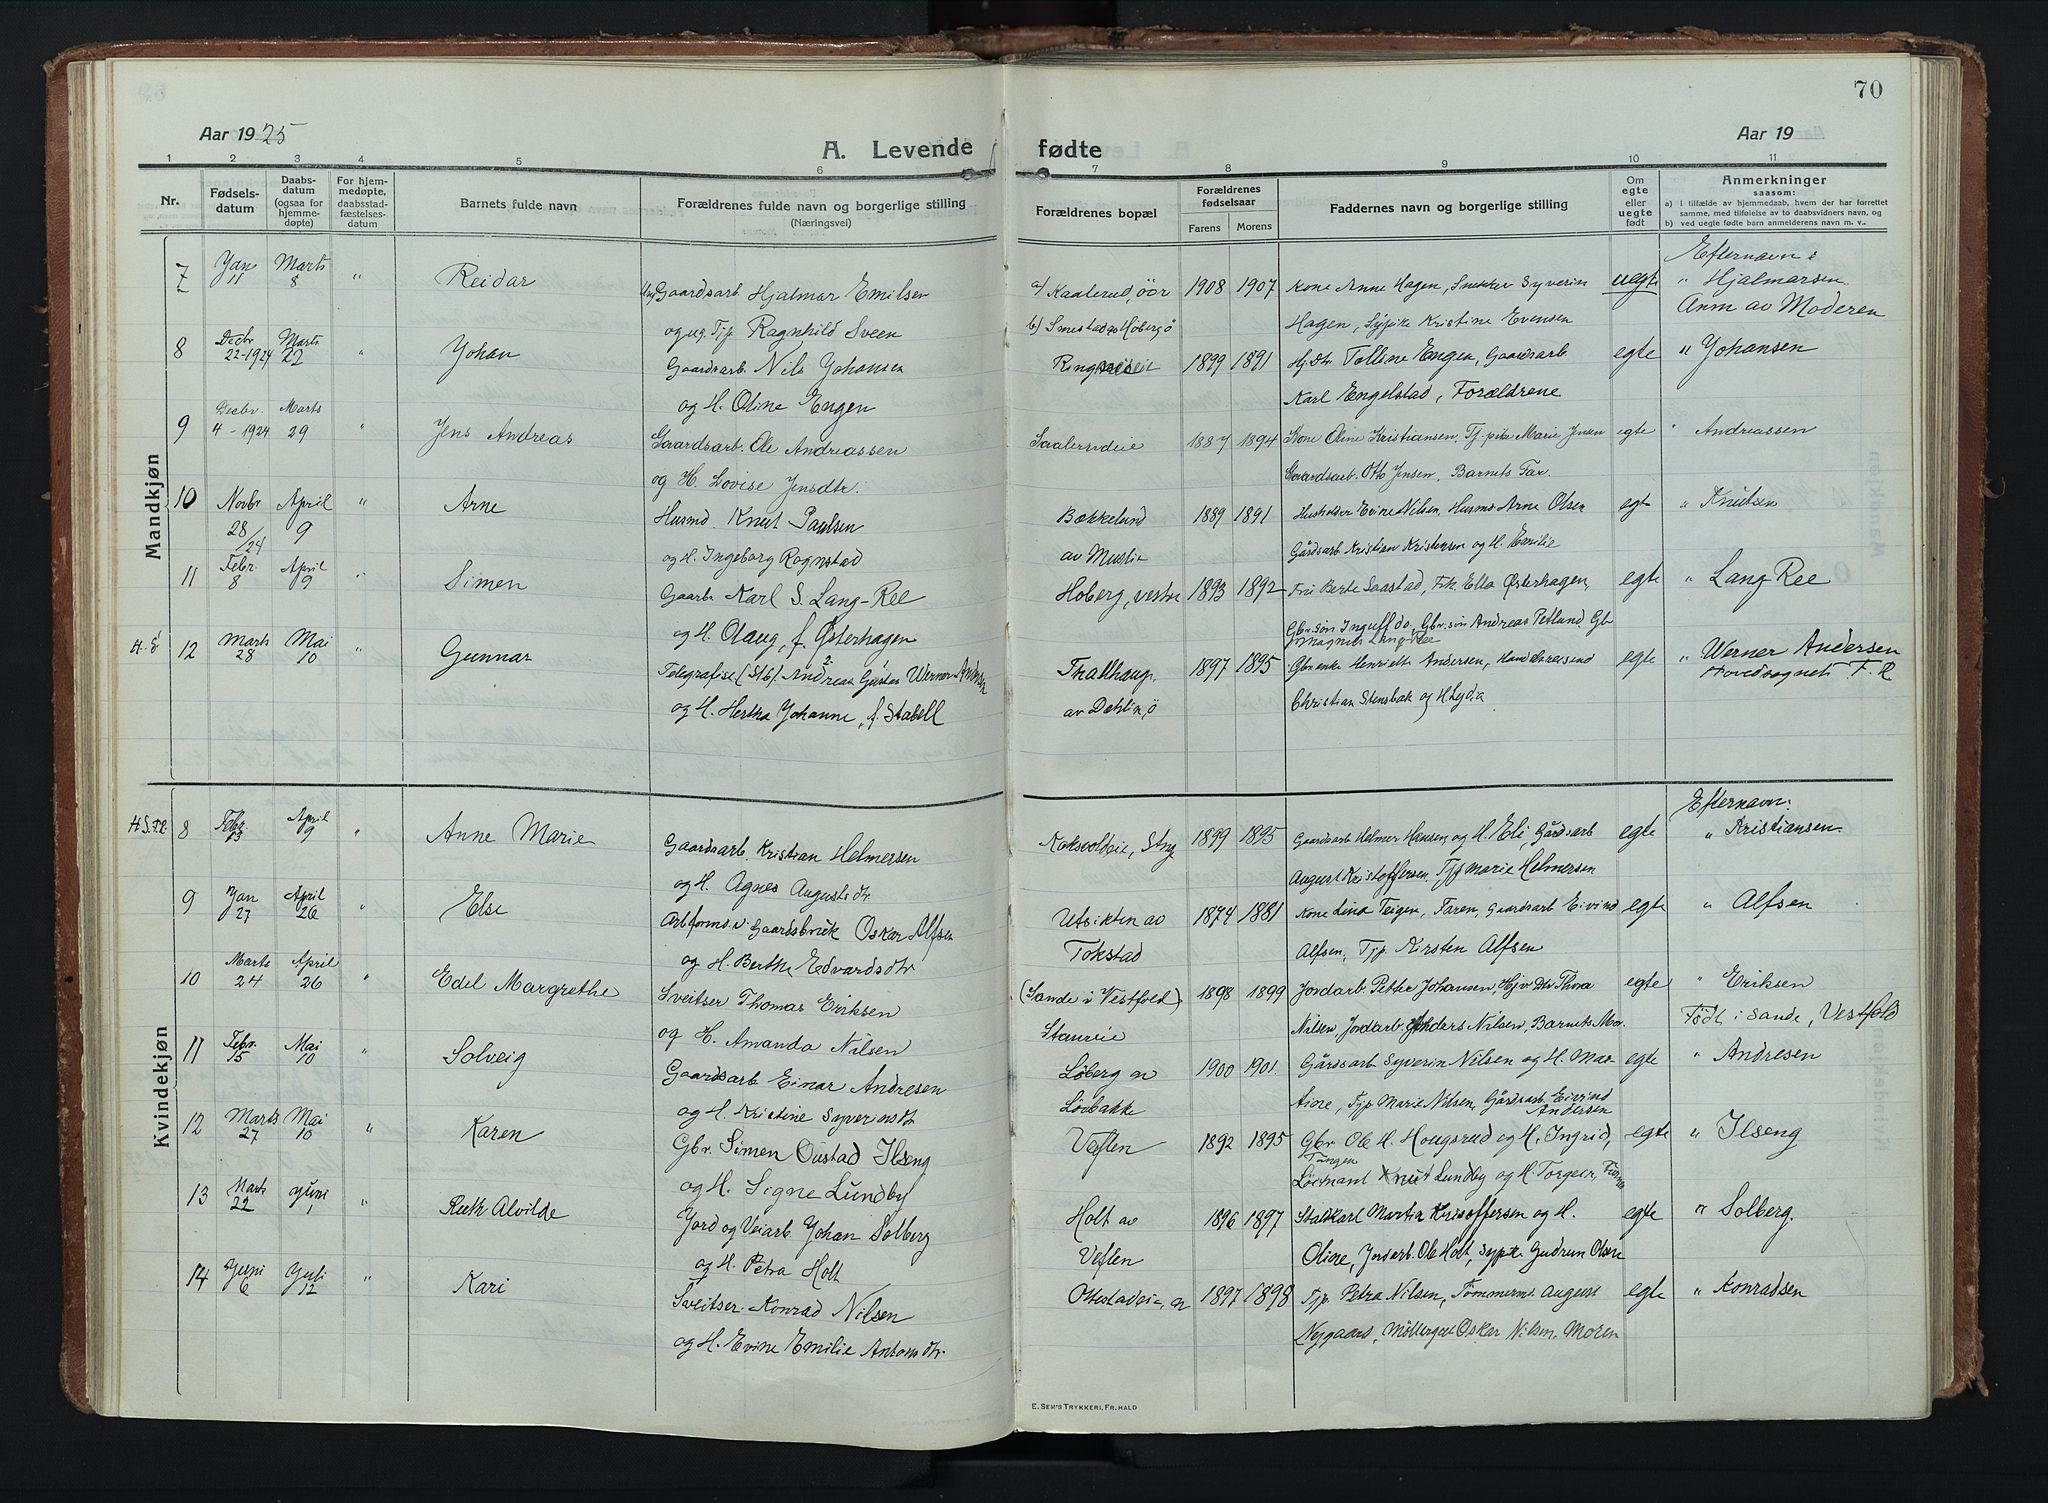 70
Aar 1925
Aar 19
A. Levende fødte
1 2 3 4 5 6 7 8 9 10 11
Nr.
Fødsels-
datum
Daabs-
datum
(ogsaa for
hjemme-
døpte)
For hjem-
medøpte,
daabsstad-
fæstelses-
datum
Barnets fulde navn
Forældrenes fulde navn og borgerlige stilling
(Næringsvei)
Forældrenes bopæl
Forældrenes
fødselsaar
Farens Morens
Faddernes navn og borgerlige stilling
Om
egte
eller
uegte
født
Anmerkninger
saasom:
a) i tilfælde av hjemmedaab, hvem der har forrettet
samme, med tilføielse av to daabsvidners navn, og
b) ved uegte fødte barn anmelderens navn m. v..
Mandkjøn
7 Jan 11 Marts 8 " Reidar Ung Gaardsarb. Hjalmar Emilsen a/ Kaalerud, øor 1908 1907 Kone Anne Hagen, Snekker Syverin uegte Efternavn: " Hjalmarsen
og ug. Tjp. Ragnhild Sveen b) Smestad av Høberg ø Hagen, Sypike Kristine Evensen Anm av Moderen
8 Decbr 22-1924 Marts 22 " Johan Gaardsarb. Nils Johansen 1899 1891 Hj.Dtr. Talline Engen, Gaardsarb egte " Johansen
og H. Oline Engen Karl Engelstad, Forældrene
9 Decbr. 4-1924 Marts 29 " Jens Andreas Gaardsarb. Ole Andreassen Saalerudeie 1887 1894 Kone Oline Kristiansen, Tj.pike Marie Jensen egte " Andreassen
og H. Lovise Jensdtr. Gaardsarb. Otto Jensen, Barnets Far.
10 Novbr 28/24 April 9 " Arne Husmd Knut Paulsen Bækkelund 1889 1891 Husholder Evine Nilsen, Husmd Arne Olsen egte " Knutsen
og H. Ingeborg Rognstad av Muslie Gårdsarb Kristian Kristensen og H. Emilie
11 Febr. 8 April 9 " Simen Gaarbr Karl S. Lang-Ree Hoberg, vestre 1893 1892 Fru Berte Saastad, Frk. Ella Østerhagen, egte " Lang-Ree
og H. Olaug, f. Østerhagen Gbr.søn Ingulf do., Gbr.søn Andreas Petlund Gbr
Magnus Lang-Ree
H.S. 12 Marts 28 Mai 10 " Gunnar Telegrafise (Stb) Andreas Gustav Werner Andersen Thalhaug 1897 1895 Gbr.enke Henriette Andersen, Handelsreisend egte " Werner Andersen
og H. Hertha Johanne, f. Stabell av Dehlin, ø Christian Stensbak og H Lydia Hovedsognet F. R
Kvindekjøn
H.S.F.R. 8 Febr 13 April 9 " Anne Marie Gaardsarb. Kristian Helmersen Stng 1899 1895 Gaardsarb Helmer Hansen og H. Eli, Gårdsarb egte Efternavn: " Kristiansen
og H. Agnes Augustdtr August Kristoffersen, Tjp Marie Helmersen
9 Jan 27 April 26 " Else Arbformd. v. Gaardsbruk Oskar Alfsen Utsikten av 1874 1881 Kone Lina Teigen, Faren, Gaardsarb Eivind egte " Alfsen
og H. Berthe Edvardsdtr Tokstad Alfsen, Tjp. Kirsten Alfsen
10 Marts 24 April 26 " Edel Margrethe Sveitser Thomas Eriksen (Sande i Vestfold) 1898 1899 Jordarb. Petter Johansen, Hjv Dtr Thora egte " Eriksen
og H. Amanda Nilsen Staureie Nilsen, Jordarb Anders Nilsen, Barnets Mor. Født i Sande, Vestfold
11 Febr. 15 Mai 10 " Solveig Gaardsarb Einar Andresen Løberg av 1900 1901. Gårdsarb Syverin Nilsen og H. Mar- egte " Andresen
og H. Kristine Syverinsdtr Løvbakke tine, Tjp Marie Nilsen, Gårdsarb Eivind
Andersen
12 Marts 27 Mai 10 " Karen Gbr. Simen Oustad Ilseng Veflen 1892 1895 Gbr. Ole H. Hougsrud og H. Ingrid, egte " Ilseng
og H. Signe Lundby Løitnant Knut Lundby og H. Torgeir
Tangen
13 Marts 22 Juni 1 " Ruth Alvilde Jord og Veiarb Johan Solberg Holt av 1896 1897 Staldkarl Martin Kristoffersen og H. egte " Solberg.
og H. Petra Holt Veflen Oline, Jordarb. Ole Holt, Sypike Gudrun Olsen
14 Juni 6 Juli 12 " Kari Sveitser Konrad Nilsen Ottestadeie, av 1897 1898 Tjp. Petra Nilsen, Tømmerm. August egte " Konradsen
og H. Evine Emilie Antonsdtr. Nygaard, Møllergut Oskar Nilsen, Moren
E. SEM'S TRYKKERI, FR. HALD